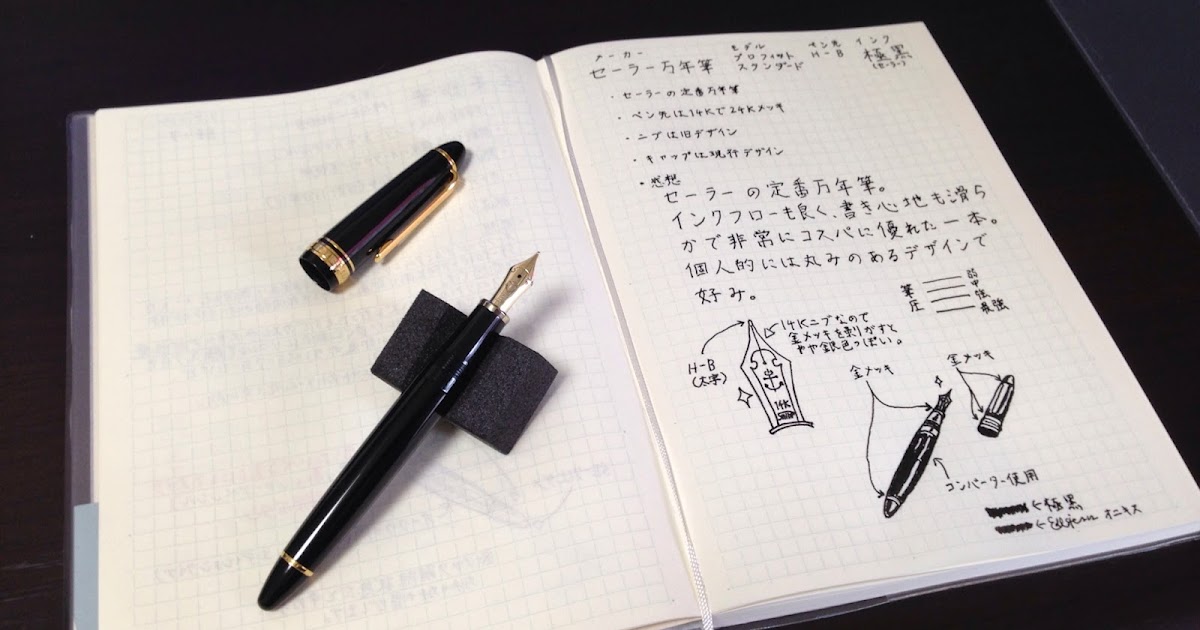 メーカー モデル ペン先 インク
セーラー万年筆 プロフィット H-B 極黒
スタンダード (セーラー)
・セーラーの定番万年筆
・ペン先は14Kで24Kメッキ
・ニブは旧デザイン
・キャップは現行デザイン
・感想
セーラーの定番万年筆。
インクフローも良く、書き心地も滑ら
かで非常にコスパに優れた一本。
個人的には丸みのあるデザインで
好み。
筆圧
弱
中
強
最強
14Kニブなので
金メッキを剥がすと
やや銀色っぽい。
H-B
(太字)
14K
金メッキ
金メッキ
コンバーター使用
←極黒
← オニキス